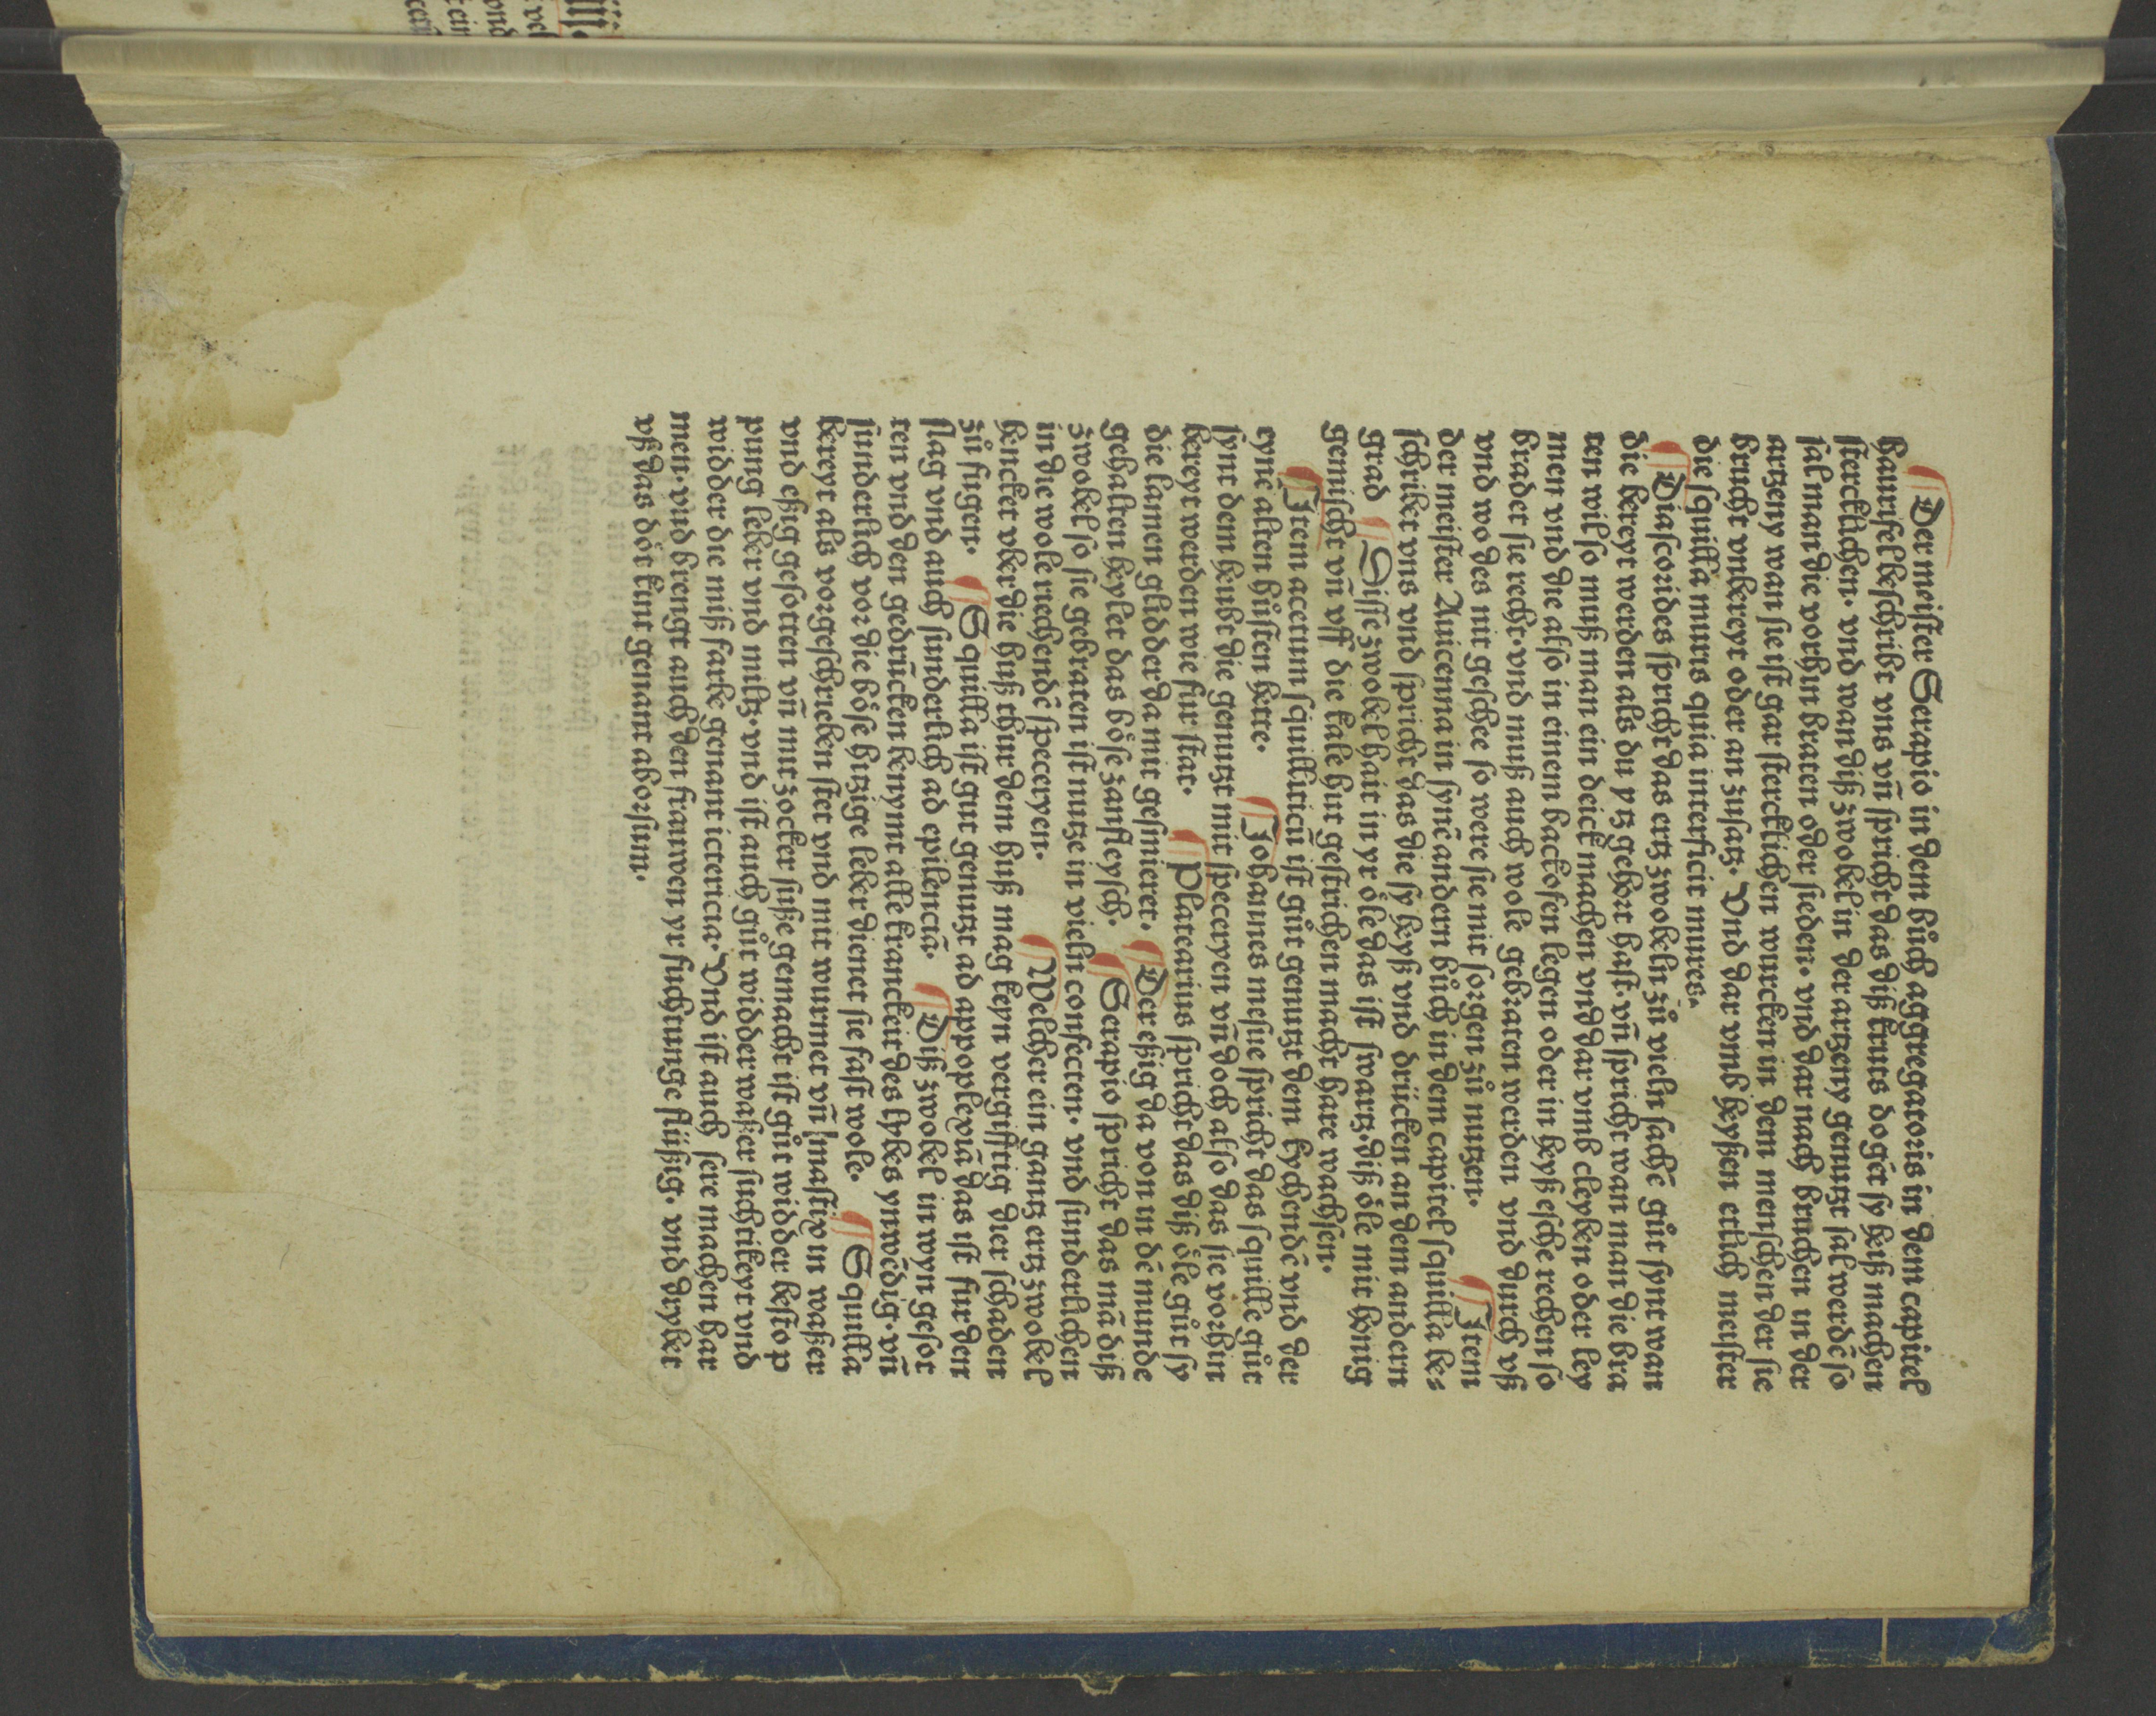 ¶ Der meister Serapio in dem bůch aggregatoris in dem capitel
haunsel beschribt vns vñ spricht das diß kruts dogēt sy heiß machen
stercklichen. vnd wan diß zwobel in der artzeny genutzt sal werdē so
sal man die vorhin braten oder sieden. vnd dar nach bruchen in der
artzeny wan sie ist gar stercklichen wurcken in dem menschen der sie
brucht vnbereyt oder an zusatz. Vnd dar vmb heyßen etlich meister
die squilla muris quia interficit mures.
¶ Diascorides spricht das ertz zwobeln zů vieln sachē gůt synt wan
die bereyt werden als du ytz gehört hast. vñ spricht wan man die bra
ten wil so muß man ein deick machen vnd dar vmb cleyben oder ley
men vnd die also in einem backofen legen oder in heyß esche rechen so
bradet sie recht. vnd muß auch wole gebraten werden vnd durch vß
vnd wo des nit geschee so were sie mit sorgen zů nutzen. ¶ Item
der meister Auicenna in synē andern bůch in dem capitel squilla be-
schribet vns vnd spricht das die sy heyß vnd drücken an dem andern
grad ¶ Disse zwobel hait in yr öle das ist swartz. diß öle mit honig
gemischt vñ vff die kale hut gestrichen macht hare wachsen.
¶ Item acetum squilliticū ist gůt genutzt dem kychendē vnd der
eynē alten hůsten hette. ¶ Johannes mesue spricht das squille gůt
synt dem heubt die genutzt mit speceryen vñ doch also das sie vorhin
bereyt werden wie fur stat. ¶ Platearius spricht das diß öle gůt sy
die lamen glidder da mit gesmieret. ¶ Der eßig da von in dē munde
gehalten heylet das böse zanfleysch. ¶ Serapio spricht das mā diß
zwobel so sie gebraten ist nutze in vieln confecten. vnd sunderlichen
in die wole riechendē specery̆en. ¶ Welcher ein gantz ertz zwobel
hencket vber die huß thur dem huß mag keyn vergifftig dier schaden
zů fugen. ¶ Squilla ist gut genutzt ad appoplexiā das ist fur den
slag vnd auch sunderlich ad epilenciā. ¶ Diß zwobel in wyn gesot
ten vnd den gedrūcken benymt alle kranckeit des lybes ynwēdig. vñ
sunderlich vor die böse hitzige leber dienet sie fast wole. ¶ Squilla
bereyt als vorgeschrieben stet vnd mit wurmet vñ mastix in waßer
vnd eßig gesotten vñ mit zocker suße gemacht ist gůt widder bestop
pung leber vnd miltz. vnd ist auch gůt widder waßer suchtikeyt vnd
widder die miß farbe genant ictericia. Vnd ist auch sere machen har
men. vnd brengt auch den frauwen yr suchunge flüßig. vnd drybet
vß das döt kint genant aborsum.